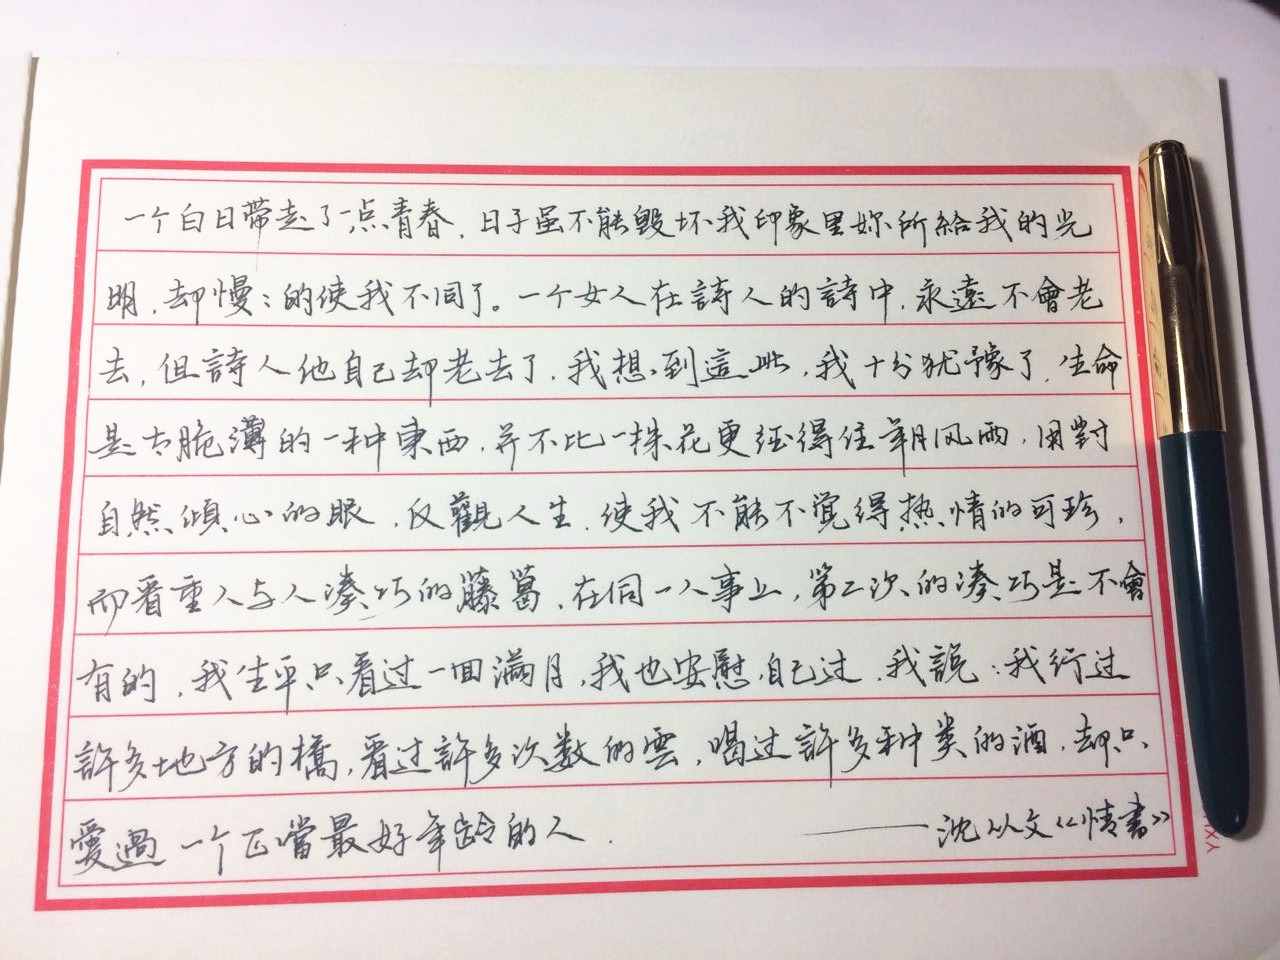 一个白日带走了一点青春，日子虽不能毁坏我印象里妳所给我的光
明，却慢:的使我不同了。一个女人在詩人的詩中，永遠不會老
去，但詩人他自己却老去了，我想到這些，我十分犹豫了，生命
是太脆薄的一种東西，并不比一株花更经得住年月风雨，用對
自然傾心的眼，反觀人生，使我不能不觉得热情的可珍，
而看重人与人湊巧的藤葛，在同一人事上，第二次的湊巧是不會
有的，我生平只看过一回满月，我也安慰自己过，我說：我行过
許多地方的橋，看过許多次数的雲，喝过許多种类的酒，却只
愛過一个正當最好年龄的人．
——沈从文《情書》